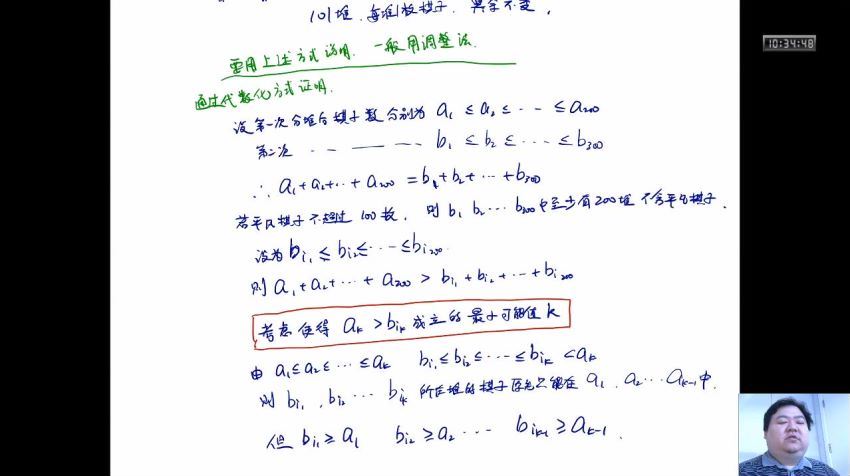 101堆,每堆1枚棋子. 其余不变.
要用上述方式说明. 一般用调整法.
通过代数化方式证明.
设第一次分堆后棋子数分别为 a₁ ≤ a₂ ≤ ⋯ ≤ a₂₀₀
第二次 ⋯ — — — b₁ ≤ b₂ ≤ ⋯ ≤ b₃₀₀
∴ a₁+a₂+⋯+a₂₀₀ = b₁+b₂+⋯+b₃₀₀
若平凡棋子不超过100枚, 则 b₁ b₂⋯b₃₀₀中至少有200堆不含平凡棋子.
设为 bᵢ₁ ≤ bᵢ₂ ≤ ⋯ ≤ bᵢ₂₀₀.
则 a₁+a₂+⋯+a₂₀₀ > bᵢ₁+bᵢ₂+⋯+bᵢ₂₀₀
考虑使得 aₖ > bᵢₖ 成立的最小可能值 k
由 a₁≤a₂≤⋯≤aₖ bᵢ₁≤bᵢ₂≤⋯≤bᵢₖ<aₖ
则 bᵢ₁, bᵢ₂ ⋯ bᵢₖ 所在堆的棋子原先只能在 a₁, a₂⋯aₖ₋₁中.
但 bᵢ₁≥a₁ bᵢ₂≥a₂ ⋯ bᵢₖ₋₁≥aₖ₋₁.
10:34:48